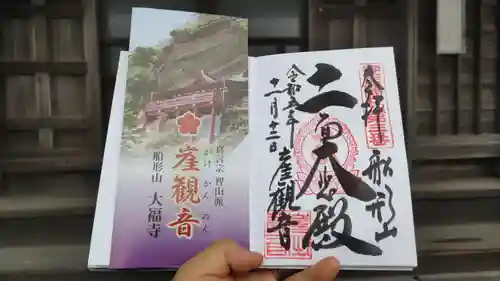 真言宗 智山派
崖観音
がけかんのん
船形山 大福寺
奉拝
船形山
大悲殿
崖観音
令和五年